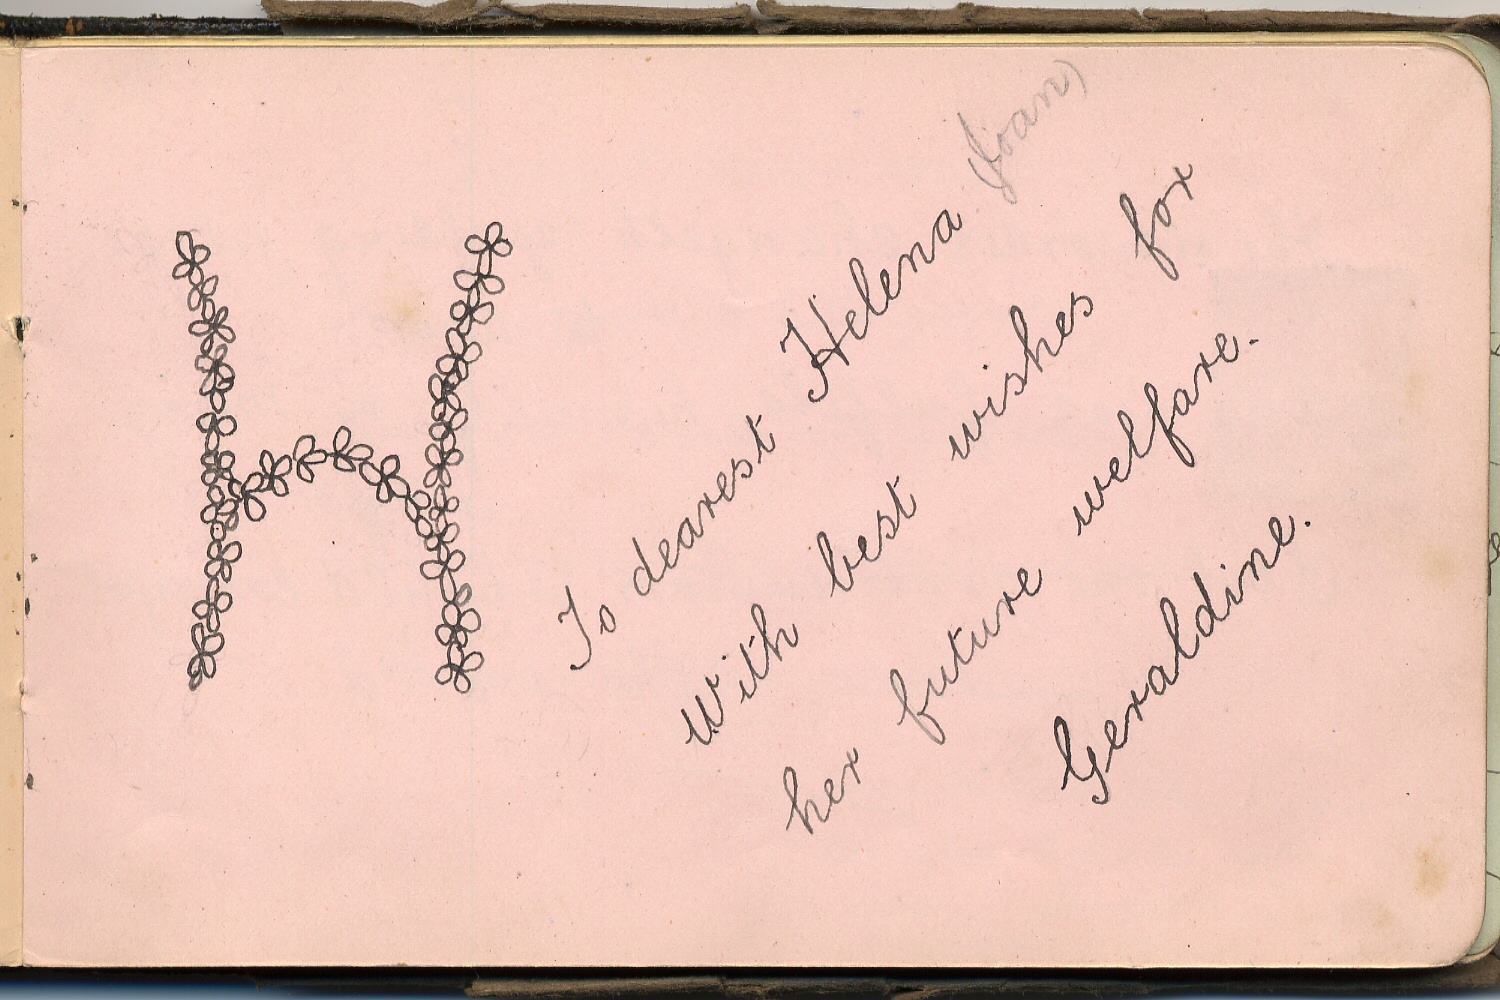 H
To dearest Helena (Joan)
With best wishes for
her future welfare.
Geraldine.